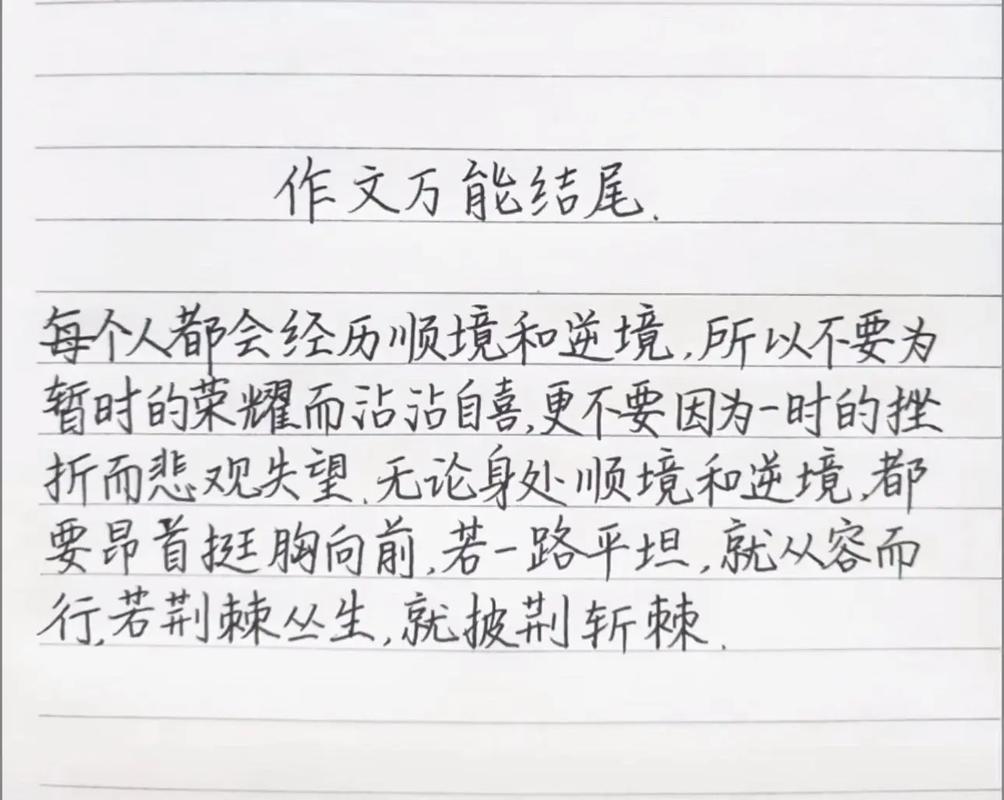 作文万能结尾.
每个人都会经历顺境和逆境,所以不要为
暂时的荣耀而沾沾自喜,更不要因为一时的挫
折而悲观失望.无论身处顺境和逆境,都
要昂首挺胸向前,若一路平坦,就从容而
行,若荆棘丛生,就披荆斩棘.